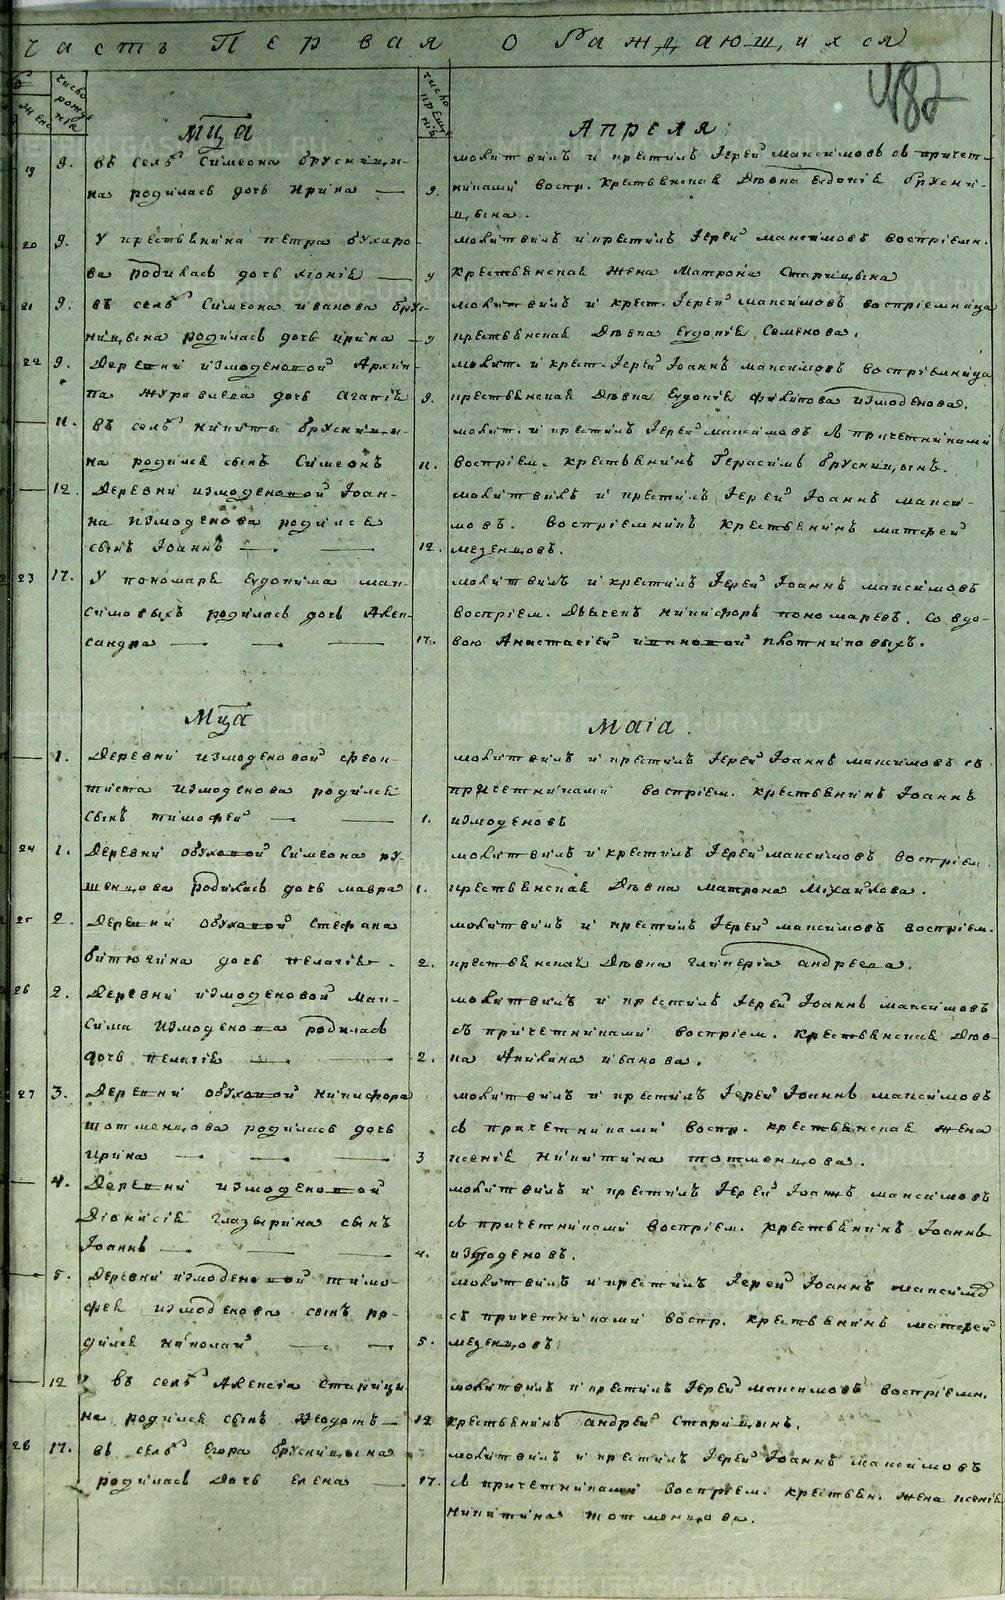 Часть Первая о Раждающихся
487
женс
число рожденія
число крещенія
Мца Апреля
19 9. въ селѣ Симеона Брусницы-
на родилась дочь Ирина —
молитвилъ и крестилъ Іерей Максимовъ съ причет-
9. никами воспр. крестьенская Дѣвка Евдокіе Брусни-
цына.
20 9. У крестьенина Петра Бухаро-
ва родилась дочь Хіоніе —
молитвилъ и крестилъ Іерей Максимовъ воспріемн.
9 крестьенская жена Матрона Старицына
21 9. въ селѣ Симеона Иванова Брус-
ницына родилась дочь Ирина —
молитвилъ и крест. Іерей Максимовъ воспріемница
9 крестьенская Дѣвка Еудокіе Семенова.
22 9. Деревни Измоденовой Архи-
па Журавлева дочь Агапіе
молит. и крест. Іерей Іоаннъ Максимовъ воспріемница
9. крестьенская Дѣвка Еудокіе Филипова Измоденова.
— 11. въ селѣ Никиты Брусницы-
на родилсе сынъ Симеонъ
молит. и крестилъ Іерей Максимовъ съ причетниками
11. воспріем. крестьенинъ Герасимъ Брусницынъ.
— 12. Деревни Измоденовой Іоан-
на Измоденова родилсе
сынъ Іоаннъ — —
молитвилъ и крестилъ Іерей Іоаннъ Макси-
мовъ. воспріемникъ крестьенинъ Матфей
12. Мезенцовъ.
23 17. У пономаре Еудокима Мак-
симовыхъ родилась дочь Алек-
сандра — — —
молитвилъ и крестилъ Іерей Іоаннъ Максимовъ
воспріем. Дьячекъ Никифоръ Пономаревъ, со вдо-
17. вою Анастасіей Ивановой Плотниковыхъ.
Мца Маіа.
— 1. Деревни Измоденовой Феок-
тиста Измоденова родилсе
сынъ Тимофей — —
молитвилъ и крестилъ Іерей Іоаннъ Максимовъ съ
причетниками воспріем. крестьенинъ Іоаннъ
1. Измоденовъ
24 1. Деревни Обуховой Симеона Ру-
шенцова родилась дочь Мавра
молитвилъ и крестилъ Іерей Максимовъ воспріем.
1. крестьенская Дѣвка Матрона Міхайлова.
25 2. Деревни Обуховой Стефана
Битюгина дочь Пелагіе.
молитвилъ и крестилъ Іерей Максимовъ воспріем.
2. крестьенская Дѣвка Гликеріа Андреева.
26 2. Деревни Измоденовой Мак-
сима Измоденова родилась
дочь Пелагіе — —
молитвилъ и крестилъ Іерей Іоаннъ Максимовъ
съ причетниками воспріем. крестьенская Дѣв-
2. ка Акилина Иванова.
27 3. Деревни Обуховой Никифора
Тотменцова родилась дочь
Ирина — — —
молитвилъ и крестилъ Іерей Іоаннъ Максимовъ
съ причетниками воспр. крестьенская жена
3 Ксеніе Никитина Тотменцова.
— 4. Деревни Измоденовой
Діонисіе Глазырина сынъ
Іоаннъ — — —
молитвилъ и крестилъ Іерей Іоаннъ Максимовъ
съ причетниками воспріем. крестьенинъ Іоаннъ
4. Измоденовъ.
— 5. Деревни Измоденовой Тимо-
фее Измоденова сынъ ро-
дилсе Николай — —
молитвилъ и крестилъ Іерей Іоаннъ Максимов
съ причетниками воспр. крестьенинъ Матфей
5. Мезенцовъ
— 12 въ селѣ Алексіа Старици-
на родилсе сынъ Феодотъ —
молитвилъ и крестилъ Іерей Максимовъ воспріемн.
12 крестьенинъ Андрей Старицынъ.
28 17. въ селѣ Егора Брусницына
родилась дочь Елена —
молитвилъ и крестилъ Іерей Іоаннъ Максимовъ
17. съ причетниками воспріем. крестьен. жена Ксеніе
Никитина Тотменцова.